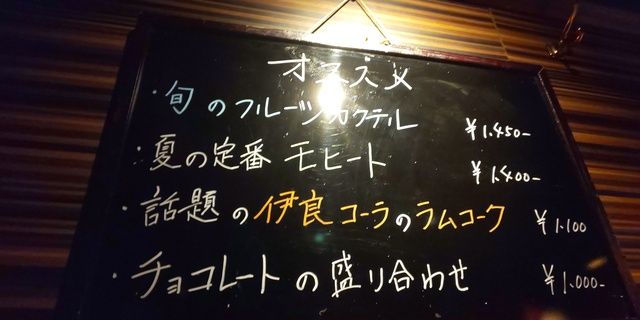 オススメ
・旬のフルーツカクテル ¥1.450-
・夏の定番 モヒート ¥1.400-
・話題の伊良コーラのラムコーク ¥1.100
・チョコレートの盛り合わせ ¥1.000-